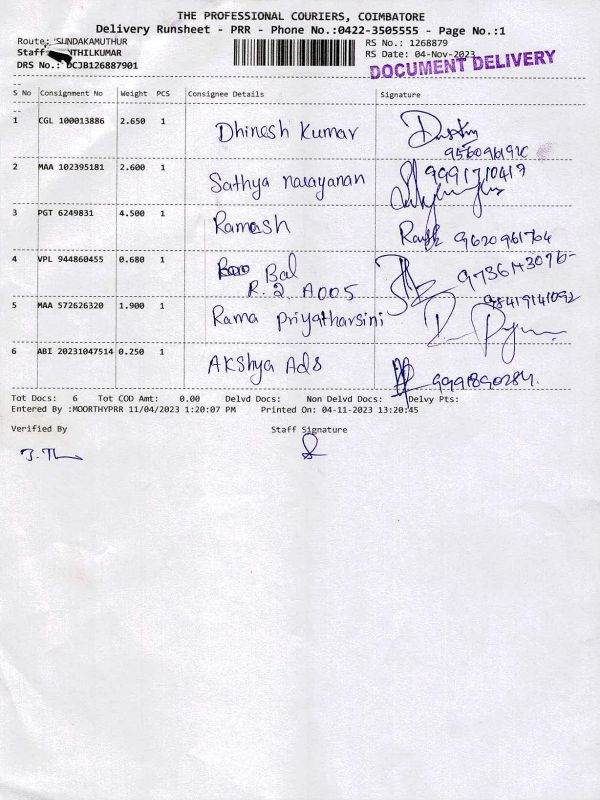 THE PROFESSIONAL COURIERS, COIMBATORE
Delivery Runsheet - PRR - Phone No.:0422-3505555 - Page No.:1
Route: SUNDAKAMUTHUR RS No.: 1268879
Staff: NTHILKUMAR RS Date: 04-Nov-2023
DRS No.: DCJB126887901 DOCUMENT DELIVERY
S No Consignment No Weight PCS Consignee Details Signature
1 CGL 100013886 2.650 1 Dhinesh Kumar
2 MAA 102395181 2.600 1 Sathya narayanan 9991710417
3 PGT 6249831 4.500 1 Ramesh 9620961764
4 VPL 944860455 0.680 1 Bal
R.2 A005
5 MAA 572626320 1.900 1 Rama Priyatharsini
6 ABI 20231047514 0.250 1 Akshya Ads 9991890284.
Tot Docs: 6 Tot COD Amt: 0.00 Delvd Docs: Non Delvd Docs: Delvy Pts:
Entered By :MOORTHYPRR 11/04/2023 1:20:07 PM Printed On: 04-11-2023 13:20:45
Verified By Staff Signature